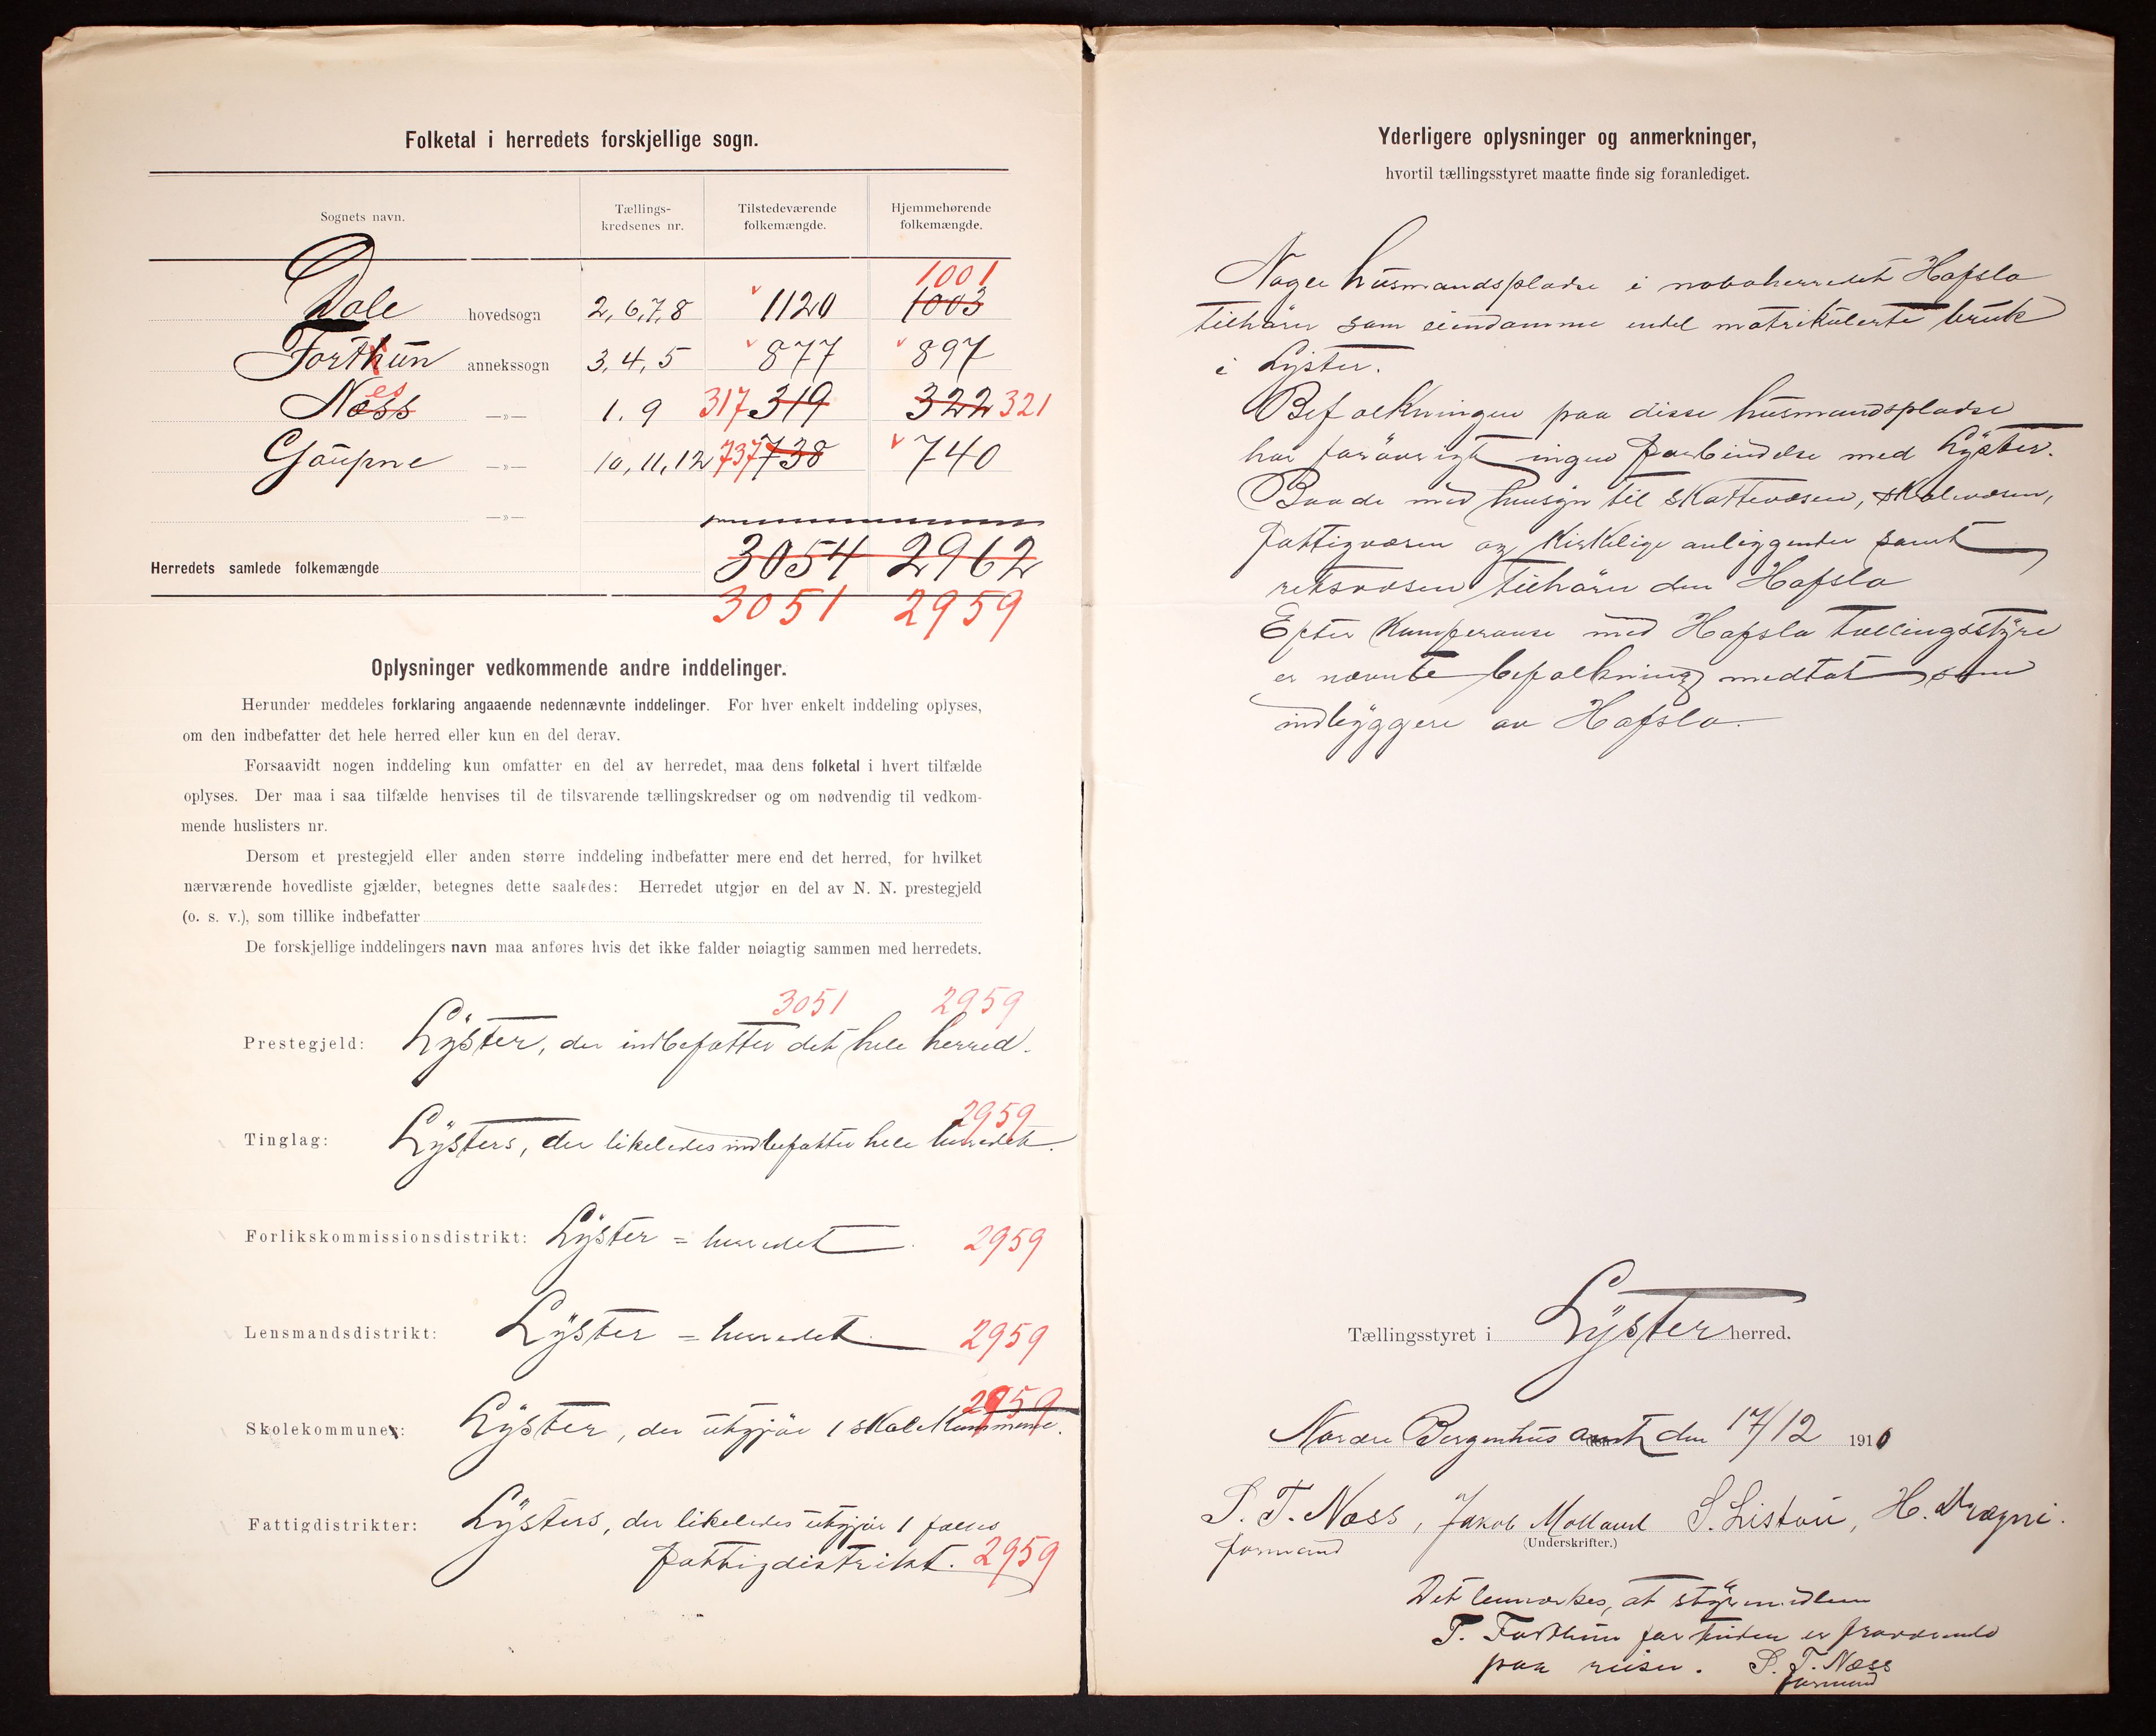 Folketal i herredets forskjellige sogn.
Sognets navn. Tællings-kredsenes nr. Tilstedeværende folkemængde. Hjemmehørende folkemængde.
1001
Dale hovedsogn 2,6,7,8 1120 1003
Forthun annekssogn 3,4,5 877 897
es
Næss —»— 1. 9 317 319 322 321
Gaupne —»— 10, 11, 12 737 738 740
—»—
Herredets samlede folkemængde 3054 2962
3051 2959
Oplysninger vedkommende andre inddelinger.
Herunder meddeles forklaring angaaende nedennævnte inddelinger. For hver enkelt inddeling oplyses,
om den indbefatter det hele herred eller kun en del derav.
Forsaavidt nogen inddeling kun omfatter en del av herredet, maa dens folketal i hvert tilfælde
oplyses. Der maa i saa tilfælde henvises til de tilsvarende tællingskredser og om nødvendig til vedkom-
mende huslisters nr.
Dersom et prestegjeld eller anden større inddeling indbefatter mere end det herred, for hvilket
nærværende hovedliste gjælder, betegnes dette saaledes: Herredet utgjør en del av N. N. prestegjeld
(o. s. v.), som tillike indbefatter
De forskjellige inddelingers navn maa anføres hvis det ikke falder nøiagtig sammen med herredets.
3051 2959
Prestegjeld: Lyster, der indbefatter det hele herred.
2959
Tinglag: Lysters, der likeledes indbefatter hele herredet.
Forlikskommissionsdistrikt: Lyster = herredet. 2959
Lensmandsdistrikt: Lyster = herredet. 2959
2959
Skolekommuner: Lyster, der utgjør 1 skolekommune.
Fattigdistrikter: Lysters, der likeledes utgjør 1 fælles
fattigdistrikt. 2959
Yderligere oplysninger og anmerkninger,
hvortil tællingsstyret maatte finde sig foranlediget.
Nogle husmandspladse i naboherredet Hafslo
tilhører som eiendomme endel matrikulerte bruk
i Lyster.
Befolkningen paa disse husmandspladse
har forøvrigt ingen forbindelse med Lyster.
Baade med hensyn til skattevæsen, skolevæsen,
fattigvæsen og kirkelige anliggender samt
retsvæsen tilhører den Hafslo
Efter konferanse med Hafslo tællingsstyre
er nævnte befolkning medtat som
indbyggere av Hafslo.
Tællingsstyret i Lyster herred.
Nordre Bergenhus amt den 17/12 1910
S. T. Næss, Jakob Molland S. Listou, H. Drægni.
formand
(Underskrifter.)
Det bemerkes, at styremedlem
T. Forthun for tiden er fraværende
paa reiser. S. T. Næss
formand